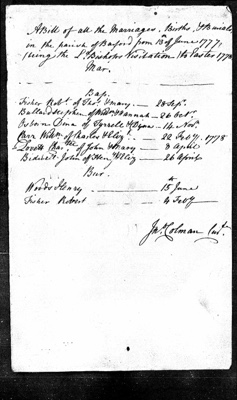 A Bill of all the Marriages, Births, & Burials
in the parish of Basford from 15th of June 1777,
being the Ld. Bishops Visitation, to Easter 1778
Mar.
Bap.
Fisher Robt. of Thos. & Mary — 28 Sept.
Ballard Stephen of Willm & Hannah — 26 Octr.
Osborn Dina of Tyrrell & Dyna — 16 Novr.
Carr Willm. of Charles & Eliz. — 22 Feby. 1778
Lovett Charltte of John & Mary — 3 April
John of Heny & Eliz — 26 April
Bur.
Woods Henry — 15th June
Fisher Robert — 4 Feby
Jno. Colman Curt.